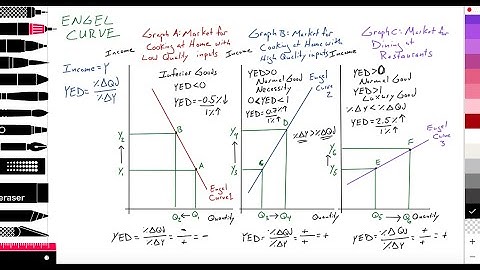 ENGEL
CURVE
Income = Y
YED = %ΔQd
%ΔY
Graph A: Market for
Cooking at Home with
Low Quality inputs
Income
Inferior Goods
YED<0
YED = -0.5%↓
1%↑
Y2
↑
Y1
B
A
Engel
Curve 1
Q2 ← Q1
Quantity
YED = %ΔQd = - = -
%ΔY +
Graph B: Market for
Cooking at Home with
High Quality inputs
Income
YED>0
Normal Good
Necessity
0<YED<1
YED = 0.7%↑
1%↑
Engel
Curve
2
%ΔY>%ΔQd
Y4
↑
Y3
D
C
Q3 → Q4
Quantity
YED = %ΔQd = + = +
%ΔY +
Graph C: Market for
Dining at
Restaurants
Income
YED>0
Normal Good
YED>1
Luxury Good
%ΔY<%ΔQd
YED = 2.5%↑
1%↑
Engel
Curve
3
Y6
↑
Y5
E
F
Q5 → Q6
Quantity
YED = %ΔQd = + = +
%ΔY +
eraser